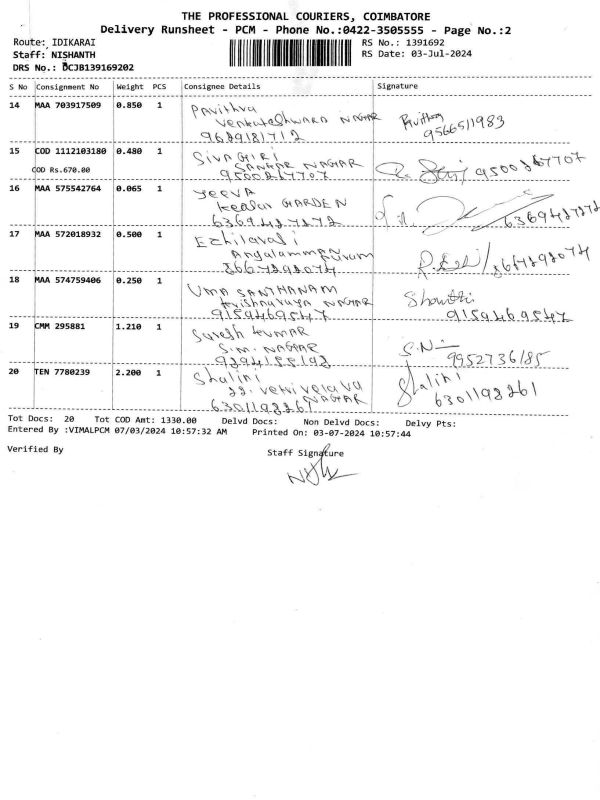 THE PROFESSIONAL COURIERS, COIMBATORE
Delivery Runsheet - PCM - Phone No.:0422-3505555 - Page No.:2
Route: IDIKARAI RS No.: 1391692
Staff: NISHANTH RS Date: 03-Jul-2024
DRS No.: DCJB139169202
S No Consignment No Weight PCS Consignee Details Signature
14 MAA 703917509 0.850 1 Pavithra
Venkateshwara NAGAR
9689181712 9566511983
15 COD 1112103180 0.480 1 SIVAGIRI
NAGAR
COD Rs.670.00 9500267707 9500267707
16 MAA 575542764 0.065 1 Jeeva
Keslar GARDEN
6369427272 6369427272
17 MAA 572018932 0.500 1 Ezhilarasi
Angalamman Puram
8667292074 8667292074
18 MAA 574759406 0.250 1 UMA SANTHANAM Shanthi
Krishnaraya NAGAR
9159469547 9159469547
19 CMM 295881 1.210 1 Suresh Kumar
S.M. NAGAR S.N
9294155192 9952736185
20 TEN 7780239 2.200 1 Shalini Shalini
22. Vetrivelava
NAGAR
6301198261 6301198261
Tot Docs: 20 Tot COD Amt: 1330.00 Delvd Docs: Non Delvd Docs: Delvy Pts:
Entered By :VIMALPCM 07/03/2024 10:57:32 AM Printed On: 03-07-2024 10:57:44
Verified By Staff Signature